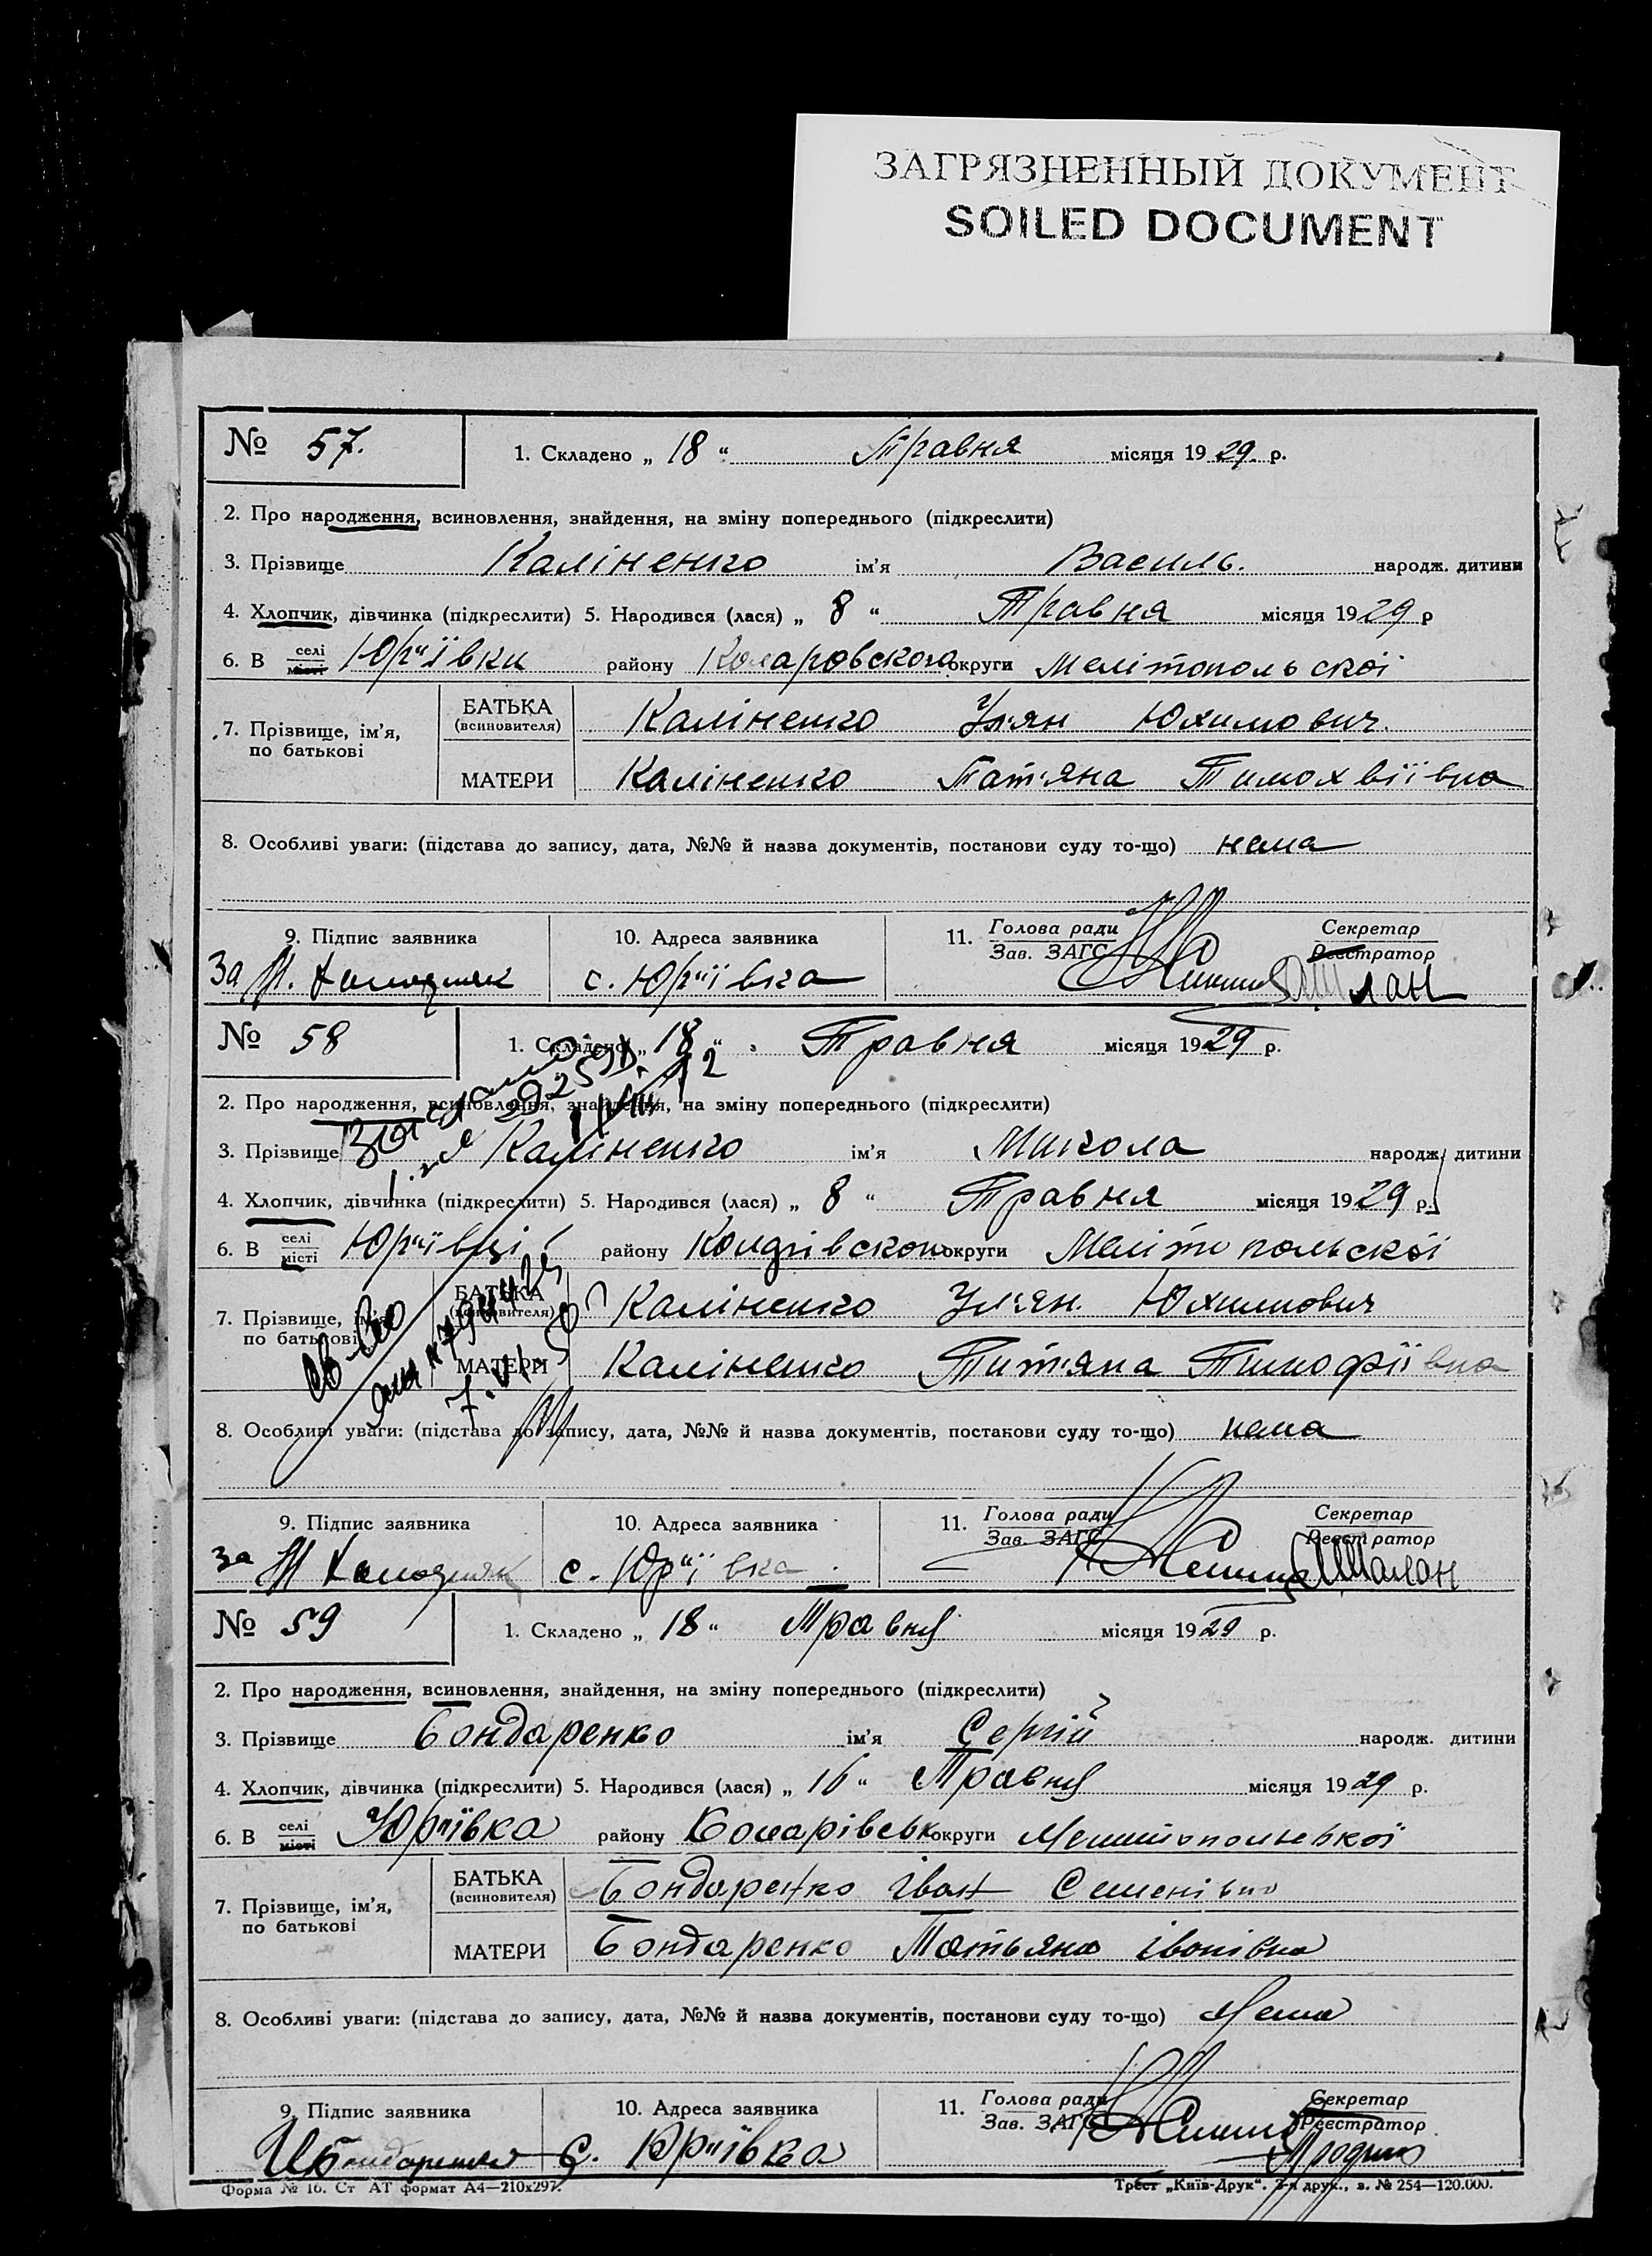 ЗАГРЯЗНЕННЫЙ ДОКУМЕНТ
SOILED DOCUMENT
№ 57. 1. Складено „ 18 “ Травня місяця 1929. р.
2. Про народження, всиновлення, знайдення, на зміну попереднього (підкреслити)
3. Прізвище Каліненко ім'я Василь. народж. дитини
4. Хлопчик, дівчинка (підкреслити) 5. Народився (лася) „ 8 “ Травня місяця 1929 р
6. В селі місті Юр'ївки району Коларовского округи Мелітопольскої
7. Прізвище, ім'я, по батькові
БАТЬКА (всиновителя) Каліненко Ул'ян Юхимович.
МАТЕРИ Каліненко Тат'яна Тимохвіївна
8. Особливі уваги: (підстава до запису, дата, №№ й назва документів, постанови суду то-що) нема
9. Підпис заявника 10. Адреса заявника 11. Голова ради Зав. ЗАГС Секретар Реєстратор
За с. Юр'ївка
№ 58 1. Складено „ 18 “ Травня місяця 1929 р.
2. Про народження, всиновлення, знайдення, на зміну попереднього (підкреслити)
3. Прізвище Каліненко ім'я Микола народж. дитини
4. Хлопчик, дівчинка (підкреслити) 5. Народився (лася) „ 8 “ Травня місяця 1929 р.
6. В селі місті Юр'ївці району округи Мелітопольскої
7. Прізвище, ім'я, по батькові
БАТЬКА (всиновителя) Каліненко Ул'ян. Юхимович
МАТЕРИ Каліненко Тит'яна Тимофіївна
8. Особливі уваги: (підстава до запису, дата, №№ й назва документів, постанови суду то-що) нема
9. Підпис заявника 10. Адреса заявника 11. Голова ради Зав. ЗАГС Секретар Реєстратор
За с. Юр'ївка Шалан
№ 59 1. Складено „ 18 “ Травня місяця 1929 р.
2. Про народження, всиновлення, знайдення, на зміну попереднього (підкреслити)
3. Прізвище Бондаренко ім'я Сергій народж. дитини
4. Хлопчик, дівчинка (підкреслити) 5. Народився (лася) „ 16 “ Травня місяця 1929 р.
6. В селі місті Юр'ївка району Коларівськ округи Мелитопольської
7. Прізвище, ім'я, по батькові
БАТЬКА (всиновителя) Бондаренко іван
МАТЕРИ Бондаренко Татьяна іванівна
8. Особливі уваги: (підстава до запису, дата, №№ й назва документів, постанови суду то-що) Нема
9. Підпис заявника 10. Адреса заявника 11. Голова ради Зав. ЗАГС Секретар Реєстратор
И Бондаренко с. Юр'ївка
Форма № 16. Ст АТ формат А4—210х297. Трест „Київ-Друк“. 3-я друк., в. № 254—120.000.